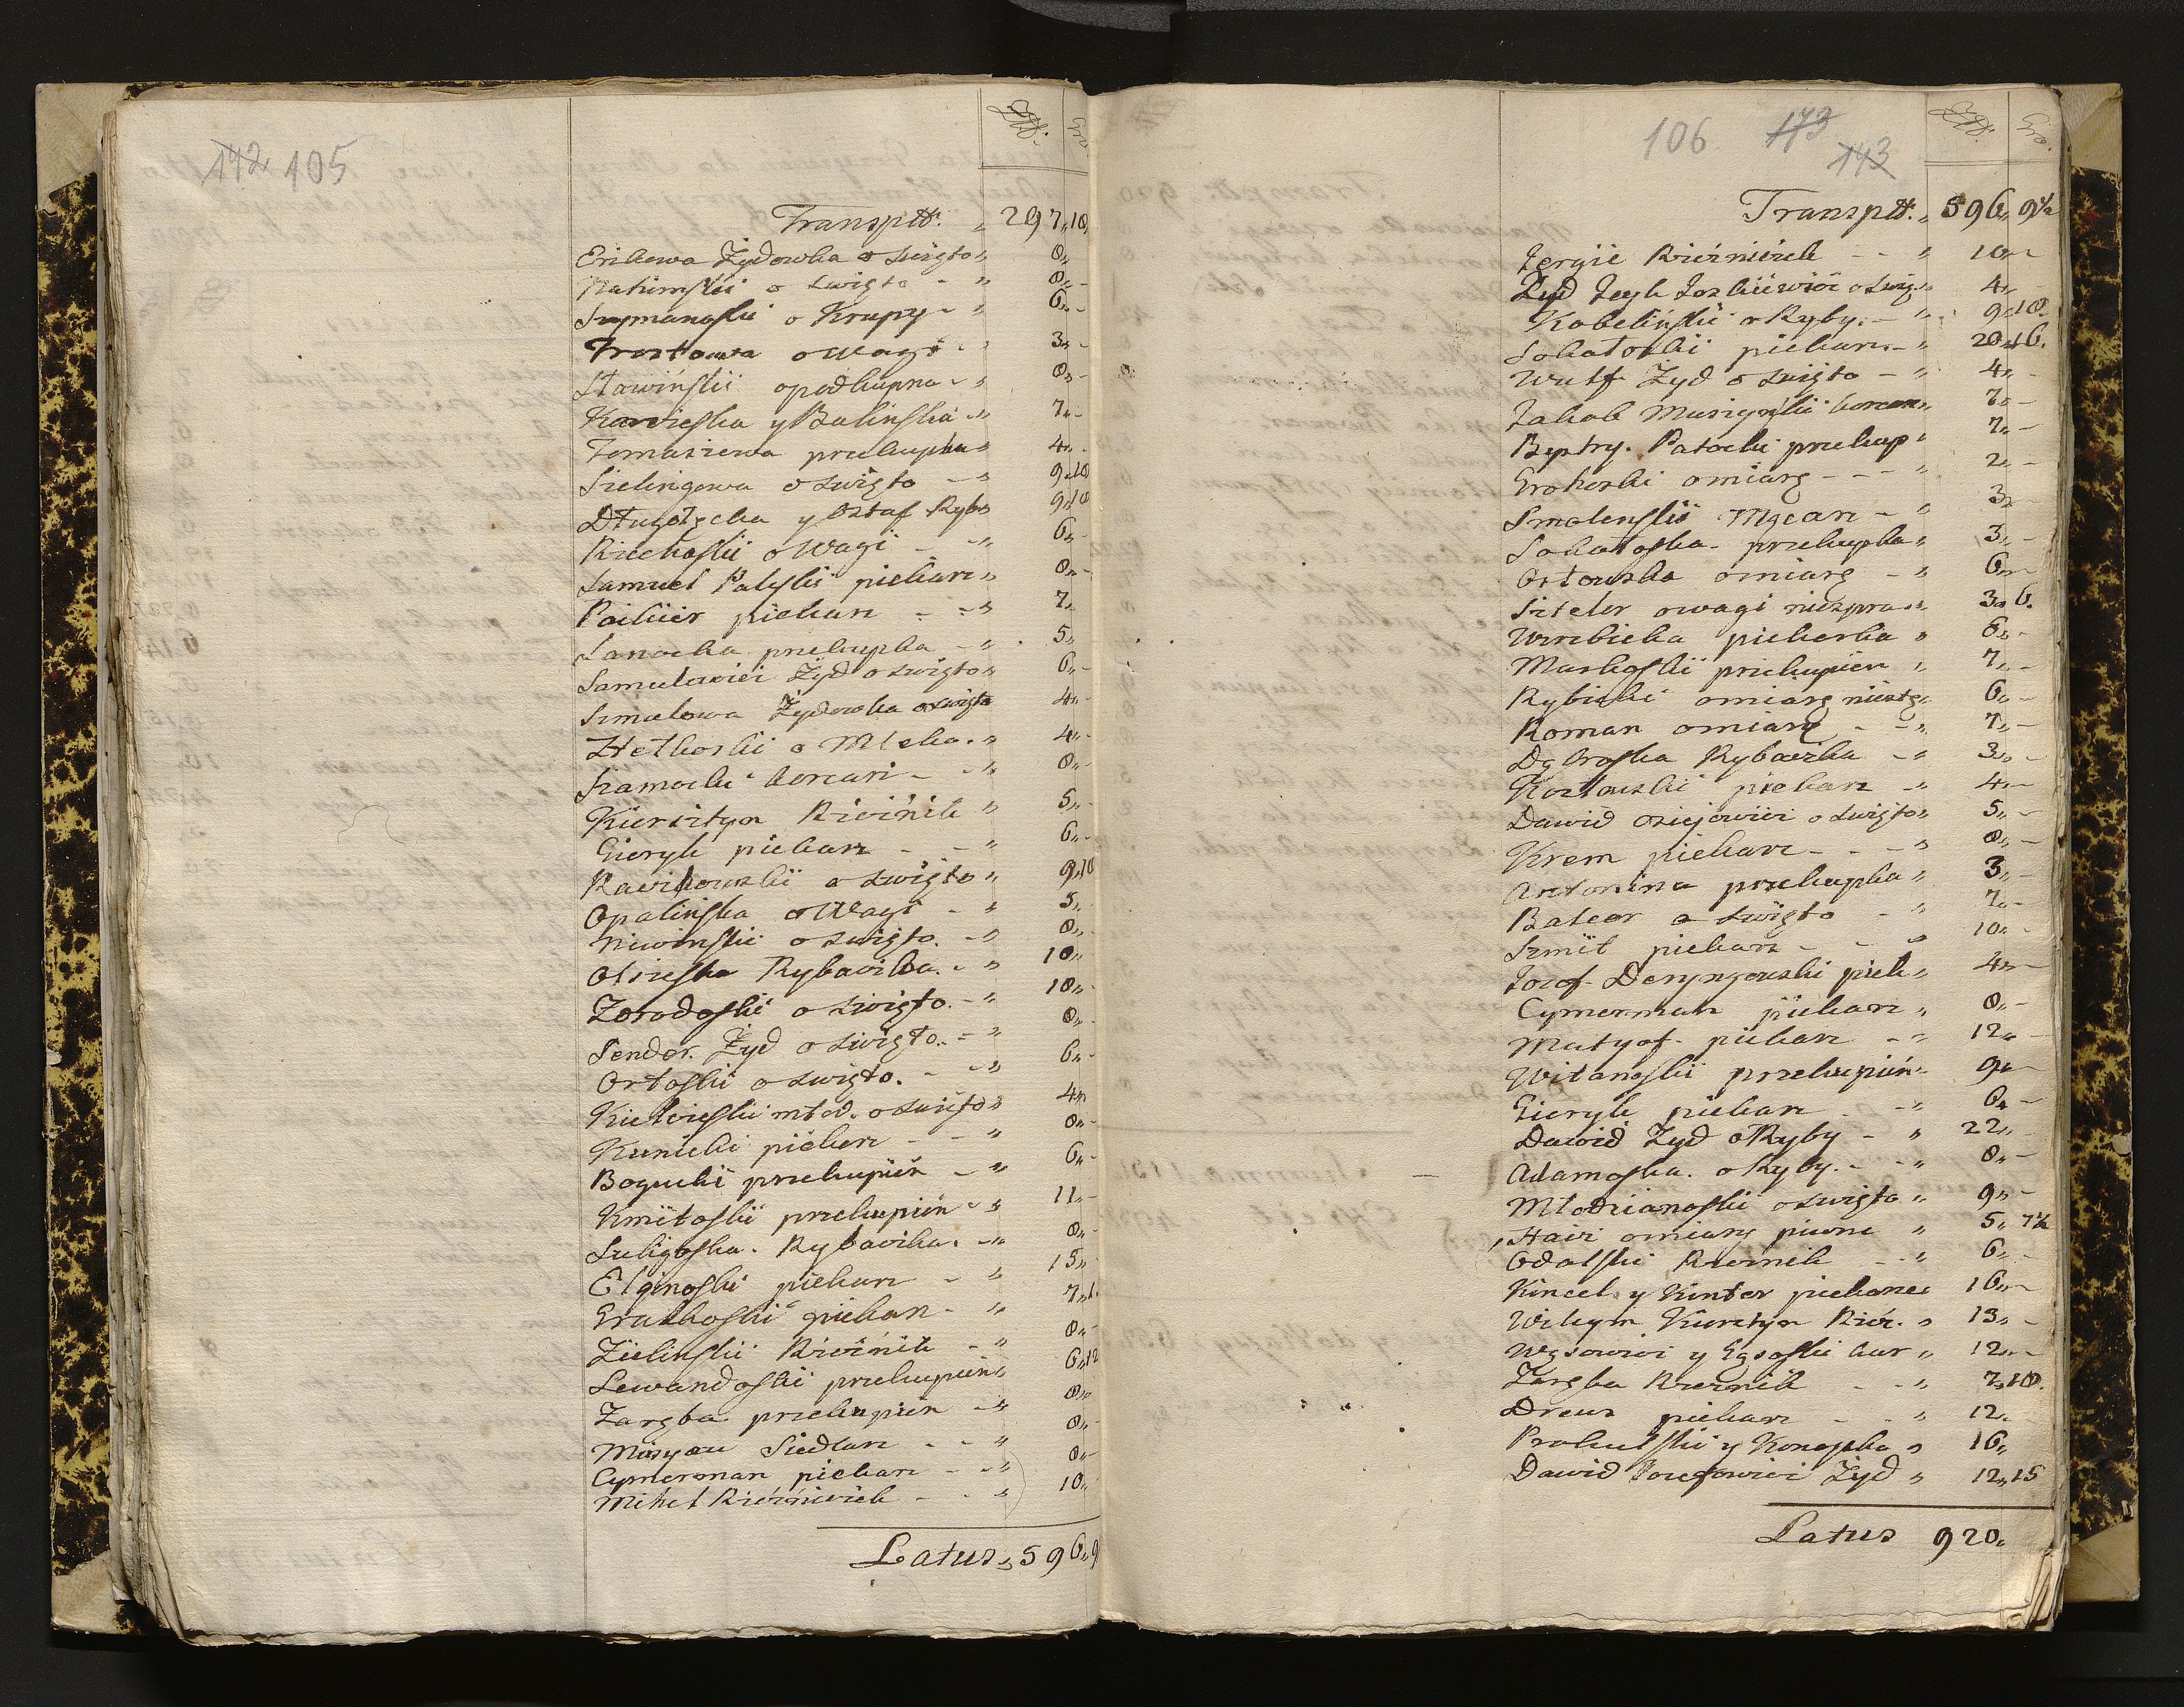 142 105
Złł. Gro.
Transptt. „ 297„18„
Erikowa Żydowka o swięto „ 8„
Natimskii o swięto - „ 8„ -
Szymanoskii o Krupy - „ 6„ -
Trostowa o Wagi - „ 3„ -
Stawińskii o podkupna - „ 8„ -
Karcieska y Balinska - „ 7„ -
Tomaszewa przekupka „ 4„ -
Szelingowa o swięto - „ 9„18
Długołęcka y Ostaf. Rybe 9„18
Rzechoskii o Wagi - „ 6„ -
Samuel Palyskii piekarz „ 8„ -
piekarz - „ 7„
Sanocka przekupka - „ 5„
Samulowicz Żyd o swięto „ 6„ -
Szmulowa Żydowka o swięto 4„ -
o Mleko - „ 4„ -
Sramocki korcarz - „ 8„
Kiersztyn Rzeźnik „ 5„ -
Gieryk piekarz - - „ 6„ -
o swięto „ 9„18
Opalinska o Wagi - „ 5„
Niwinskii o swięto. - „ 8„
Olszeska Rybaczka. - „ 10„
Zorodoskii o swięto. - „ 10„ -
Sender. Żyd o swięto. - „ 8„ -
Ortoskii o swięto. - „ 6„ -
Kiełczeskii młod. o swięto „ 4„
Kunicki piekarz - - „ 8„ -
Bogucki przekupień - „ 6„ -
Kmitoskii przekupień - „ 11„ -
Szeligoska. Rybaczka. - „ 8„ -
Elginoski piekarz - „ 15„
piekarz - „ 7„1.
Zielinskii Rzeźnik - „ 8„ -
Lewandoski przekupień „ 6„12
Zaręba przekupień - „ 8„
Siedlarz - - „ 8„ -
Cymerman piekarz - - „ 8„ -
Mihel Rzeźniczek - - „ 10„
Latus„ 596„9

106 173
143
Złł. Gro.
Transptt. „ 596„ 9½
Jergie Rzeźniczek - - „ 10„ -
Żyd Jeyk Joskiewicz o swię. „ 4„ -
Kobelińskii o Ryby. - „ 9„18
Sokołoski piekarz - „ 20„16.
Wulf Żyd o swięto - „ 4„ -
Jakob korcarz „ 7„ -
Beptry. Patocki przekup „ 7„ -
Grohoski o miarę - - „ 2„ -
Smolenskii Mącarz - „ 3„ -
Sokołoska przekupka „ 3„ -
Ortowska o miarę - „ 6„ -
Szteler o wagi niezpra. „ 3„ 6.
Wirzbicka piekarka „ 6„ -
Markoskii przekupień „ 7„ -
Rybicki o miarę „ 6„ -
Roman o miarę - „ 7„ -
Dąbroska Rybaczka - „ 3„ -
Kozłowskii piekarz - „ 4„ -
Dawid Osiejowicz o swięto „ 5„ -
Krem piekarz - - „ 8„ -
Antonina przekupka „ 3„ -
Balcer o swięto - „ 7„ -
Szmit piekarz - - „ 10„ -
Jozef Deryngowski piek „ 4„ -
Cymerman piekarz „ 8„ -
Matyas. piekarz - „ 12„ -
Witanoskii przekupień „ 9„ -
Gieryk piekarz - „ 6„ -
Dawid Żyd o Ryby - „ 22„
Adamoska. o Ryby. - „ 8„ -
Młodzianoskii o swięto „ 9„ -
Haizi o miarę piwne „ 5„ 7½
Odolski Rzeźnik - „ 6„ -
Kincel y Kinter piekarze 16„ -
Kiersztyn Rzeź. „ 13„ -
Wąsowicz y kur „ 12„ -
Zaręba Rzeźnik - „ 7„18.
Dreus piekarz - „ 12„ -
y Konopka „ 16„
Dawid Jozefowicz Żyd „ 12„15
Latus 920„